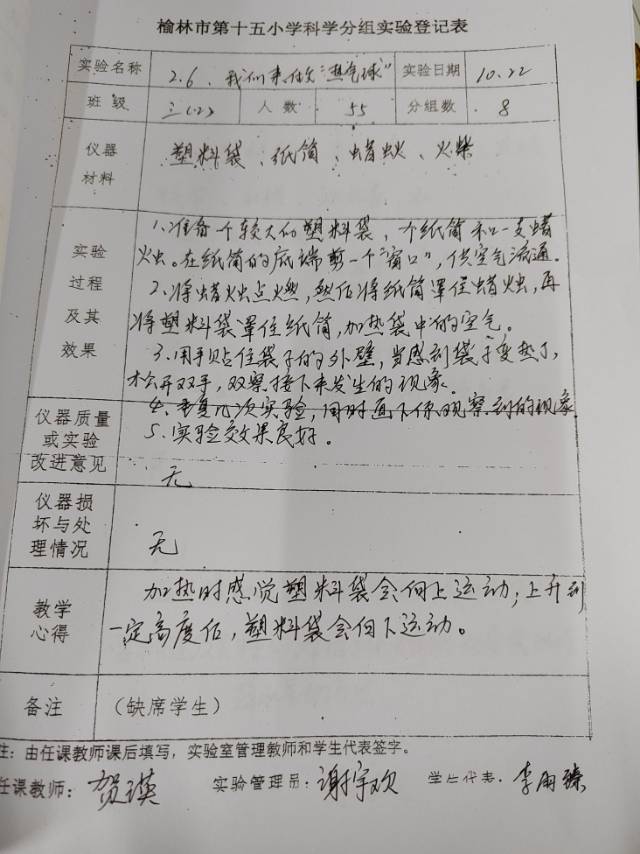 榆林市第十五小学科学分组实验登记表
实验名称 2.6、我们来做“热气球” 实验日期 10.22
班级 三(2) 人数 55 分组数 8
仪器
材料
塑料袋、纸筒、蜡烛、火柴
实验
过程
及其
效果
1、准备一个较大的塑料袋、个纸筒和一支蜡
烛。在纸筒的底端剪一个“窗口”，供空气流通.
2、将蜡烛点燃，然后将纸筒罩住蜡烛，再
将塑料袋罩住纸筒，加热袋中的空气。
3、用手贴住袋子的外壁，当感到袋子变热了，
松开双手，观察接下来发生的现象.
4、重复几次实验，同时画下你观察到的现象
5、实验效果良好。
仪器质量
或实验
改进意见
无
仪器损
坏与处
理情况
无
教学
心得
加热时感觉塑料袋会向上运动；上升到
一定高度后，塑料袋会向下运动。
备注 （缺席学生）
注：由任课教师课后填写，实验室管理教师和学生代表签字。
任课教师：贺瑛 实验管理员：谢宇欢 学生代表：李雨臻